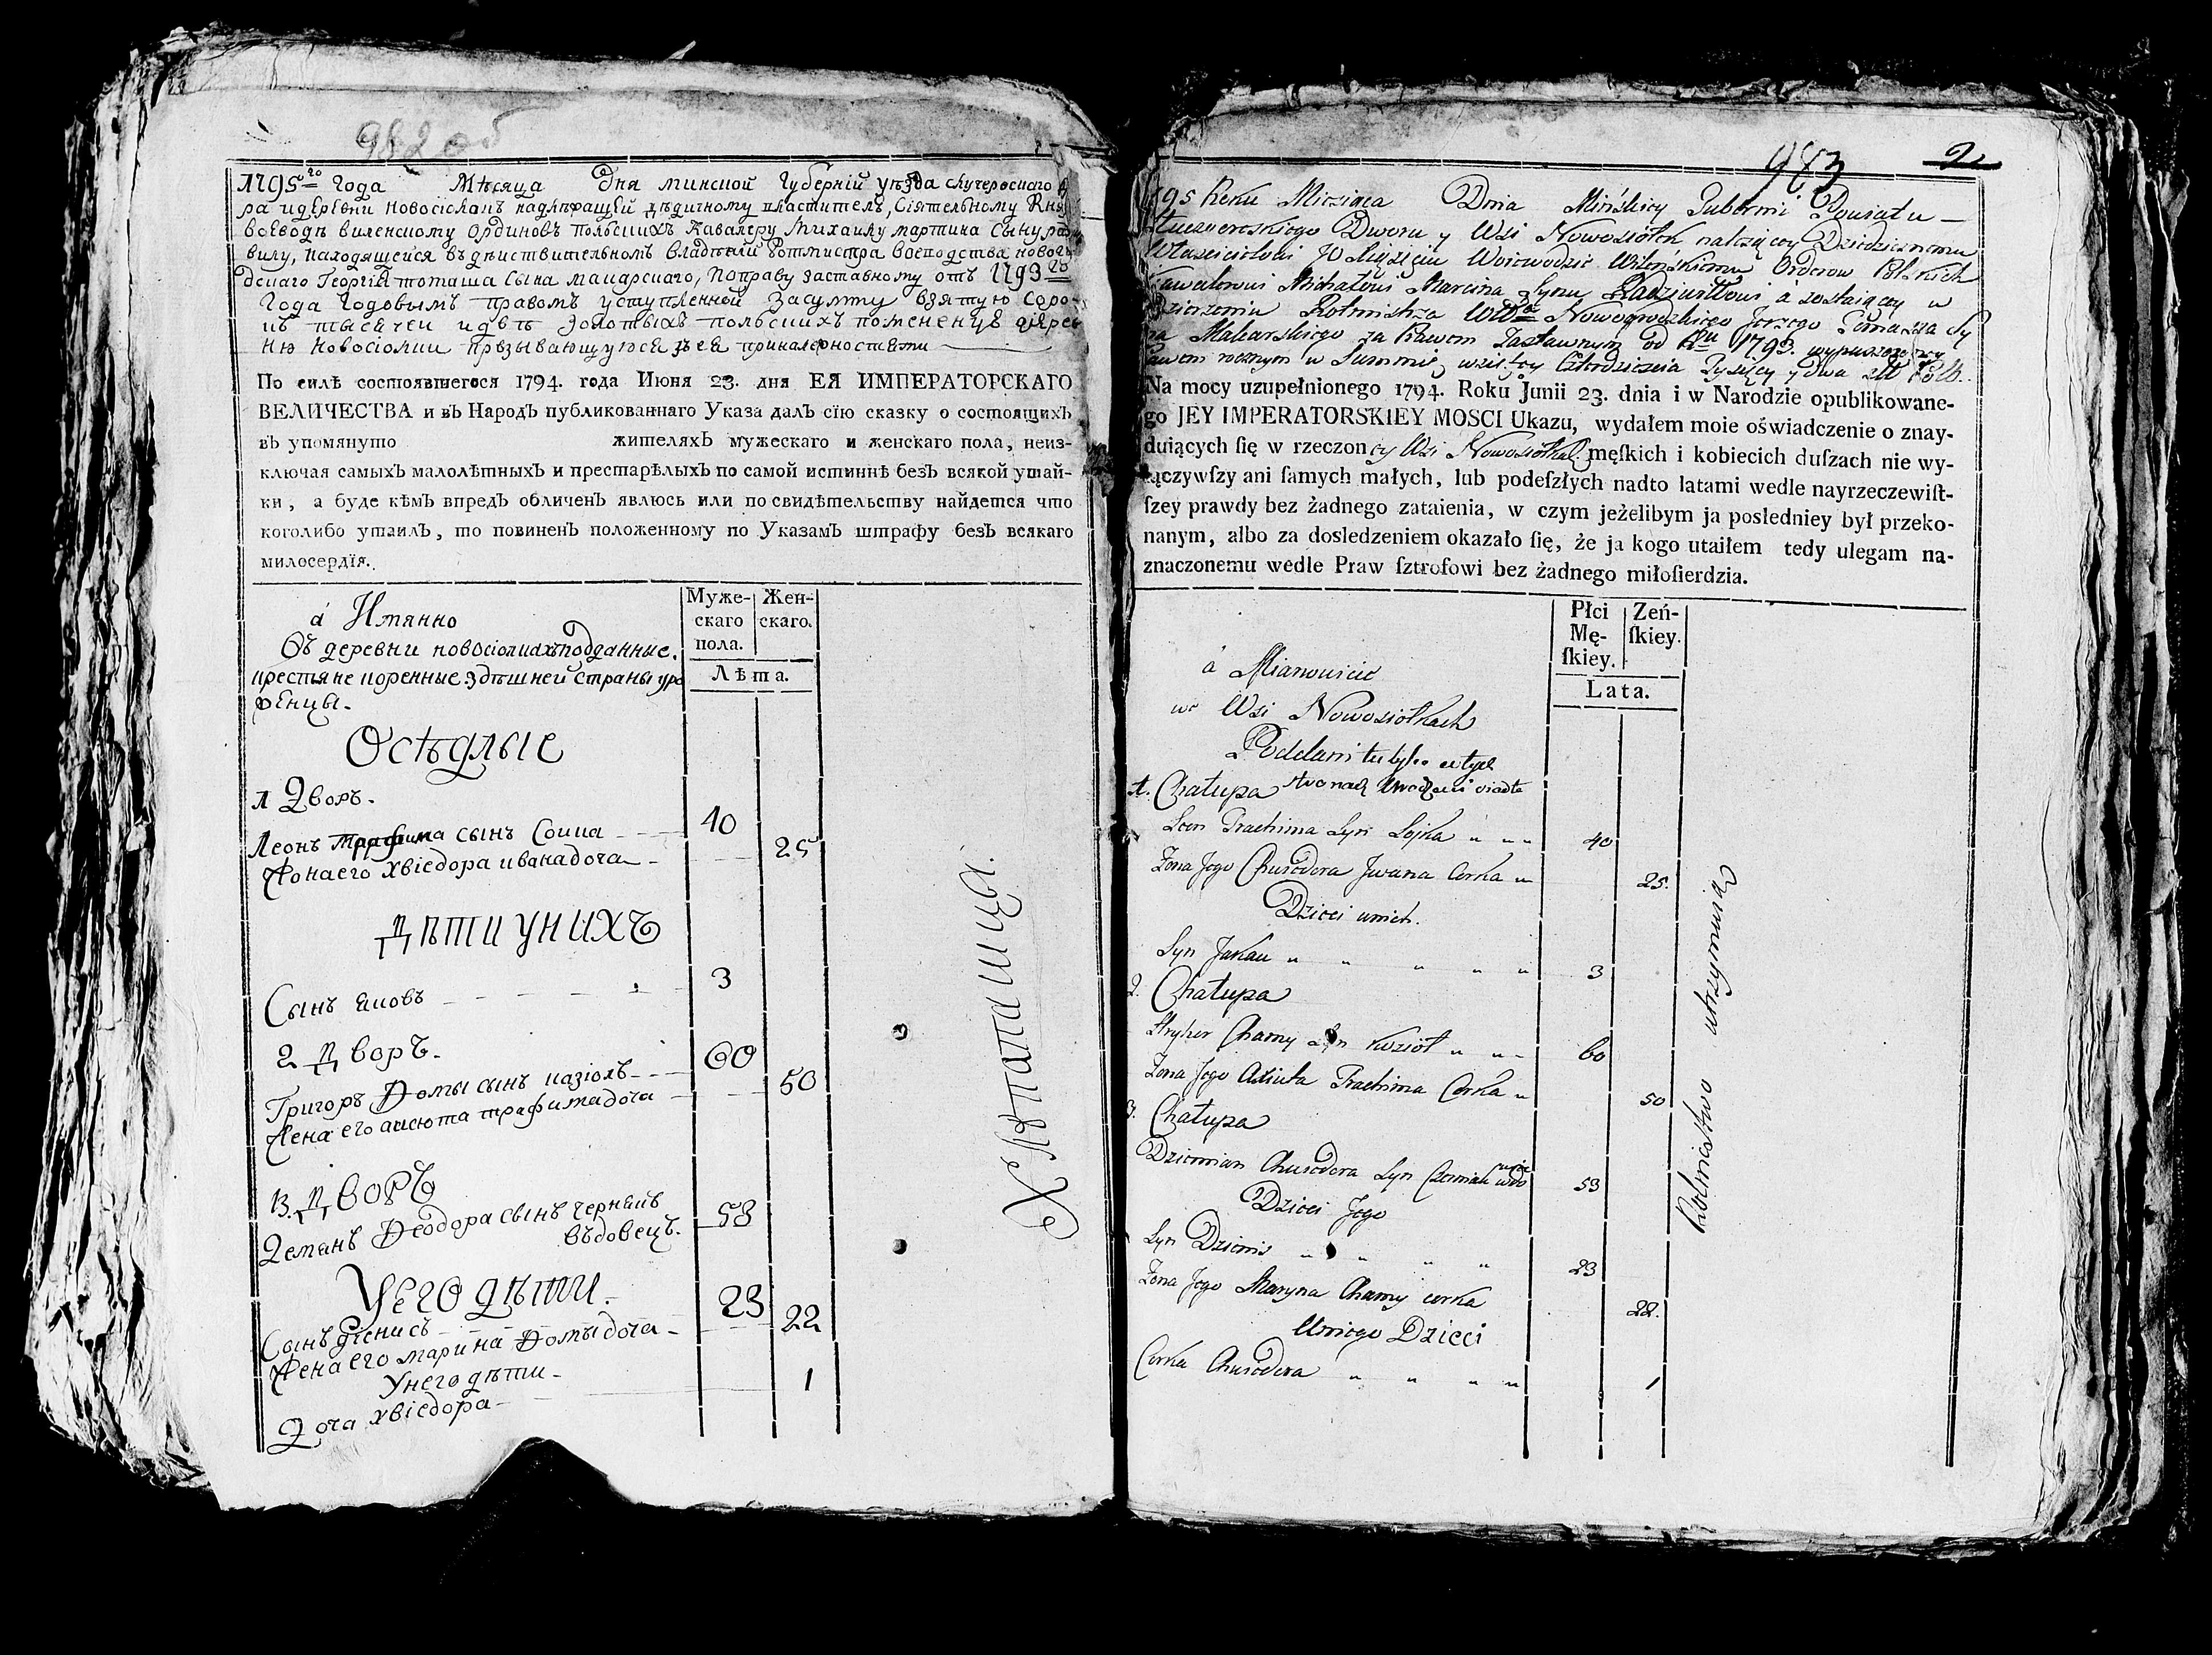 982 об
1795го года Мѣсяца Дня минской Губерній уѣзда
ра и деревни Новосіолкъ надлѣжащей дѣдичному властителъ, Сіятельному Кня
воеводѣ виленскому Ординовъ польскихъ Кавалеру Михаилу мартина сыну
вилу, находящейся въ дѣиствительномъ владѣніи Ротмистра воеводства новог
дскаго Георгія томаша сына макарскаго, по праву заставному отъ 1793го
Года годовымъ правомъ уступленной За сумму взятую соро-
къ тысѣчеи и двѣ золотыхъ польскихъ помененце дерев
ню Новосіолки
По силѣ состоявшегося 1794. года Июня 23. дня ЕЯ ИМПЕРАТОРСКАГО
ВЕЛИЧЕСТВА и въ Народъ публикованнаго Указа далъ сїю сказку о состоящихъ
въ упомянуто жителяхъ мужескаго и женскаго пола, неиз-
ключая самыхъ малолѣтныхъ и престарѣлыхъ по самой истиннѣ безъ всякой утай-
ки, а буде кѣмъ впредъ обличенъ явлюсь или по свидѣтельству найдется что
коголибо утаилъ, то повиненъ положенному по Указамъ штрафу безъ всякаго
милосердїя.
Муже-скаго пола. Жен-скаго.
Лѣта.
а Имянно
Въ деревни новосіолкахъ подданные.
крестяне коренные здѣшней страны уро
женцы.
Осѣдлые
1 Дворъ.
Леонъ трафима сынъ Сойка 40
Жона его хвіедора ивана доча 25
дѣти у нихъ
Сынъ яковъ 3
2 дворъ.
Григоръ Ѳомы сынъ казіолъ 60
Жена его аксюта трафима доча 50
3. дворъ
Деманъ Ѳеодора сынъ черныи 53
въдовецъ.
У него дѣти.
Сынъ діенисъ 23
Жена его марина Ѳомы доча 22
У него дѣти
Доча хвіедора 1
Хлѣпапашцы.
983 2
1795 Roku Miesiąca Dnia Mińskiey Gubernii Powiatu
Dworu y Wsi Nowosiołek należącey Dziedzicznemu
Włascicielowi JO Xiężęciu Woiewodzie Wileńskiemu Orderow Polskich
Kawalerowi Michałowi Marcina synu Radziwiłłowi a zostaiącey w
dzierżeniu Rotmistrza Wdztwa Nowogrodzkiego Jerzego Tomasza Sy
na Makarskiego za Prawem Zastawnym od Rku 1793. wypuszczoney
Prawem rocznym w Summie wziętey Czterdzieścia Tysięcy y dwa Złł Pols.
Na mocy uzupełnionego 1794. Roku Junii 23. dnia i w Narodzie opublikowane-
go JEY IMPERATORSKIEY MOSCI Ukazu, wydałem moie oświadczenie o znay-
duiących ſię w rzeczoney Wsi Nowosiołkach męſkich i kobiecich duſzach nie wy-
łączywſzy ani ſamych małych, lub podeſzłych nadto latami wedle nayrzeczewiſt-
ſzey prawdy bez żadnego zataienia, w czym jeżelibym ja posledniey był przeko-
nanym, albo za dosledzeniem okazało ſię, że ja kogo utaiłem tedy ulegam na-
znaczonemu wedle Praw ſztrofowi bez żadnego miłoſierdzia.
Płci Mę-ſkiey. Zeń-ſkiey.
Lata.
a Mianowicie
we Wsi Nowosiołkach
Poddani
1. Chałupa
Leon Trachima Syn Sojka 40
Zona Jego Chwiedora Jwana Corka 25.
Dzieci u nich.
Syn Jakau 3
2. Chałupa
Hryhor Chamy Syn Kozioł 60
Zona Jego Axiuta Trachima Corka 50
3. Chałupa
Dziemian Chwiedora Syn Czerniak 53
Dzieci Jego
Syn Dzienis 23
Zona Jego Maryna Chamy corka 22.
U niego Dzieci
Corka Chwiedora 1
Rolnictwo utrzymuią